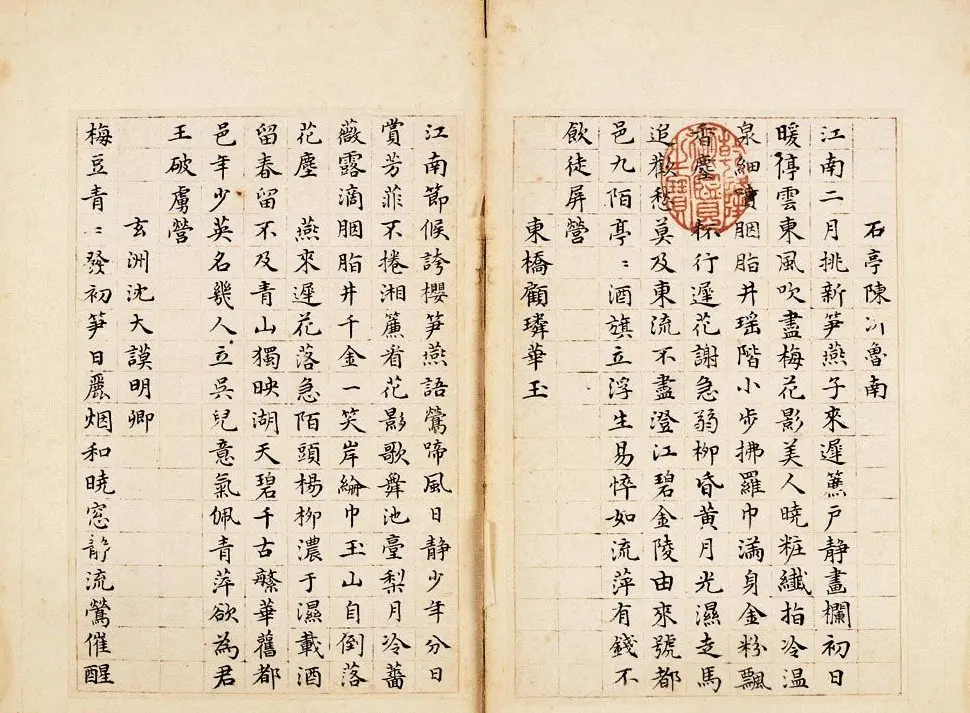 石亭陳沂魯南
江南二月挑新笋燕子來遲簾戶靜畫欄初日
暖停雲東風吹盡梅花影美人曉粧纖指冷温
泉細胭脂井瑶階小步拂羅巾滿身金粉飄
香塵 杯行遲花謝急弱柳昏黄月光濕走馬
追歡愁莫及東流不盡澄江碧金陵由來號都
邑九陌亭〻酒旗立浮生易悴如流萍有錢不
飲徒屏營
東橋顧璘華玉
乾隆御覽之寶
江南節候誇櫻笋燕語鶯啼風日静少年分日
賞芳菲不捲湘簾看花影歌舞池臺梨月冷薔
薇露滴胭脂井千金一笑岸綸巾玉山自倒落
花塵 燕來遲花落急陌頭楊柳濃于濕載酒
留春留不及青山獨映湖天碧千古蘩華舊都
邑年少英名幾人立吳兒意氣佩青萍欲為君
王破虜營
玄洲沈大謨明卿
梅豆青〻發初笋日麗烟和曉窓靜流鶯催醒